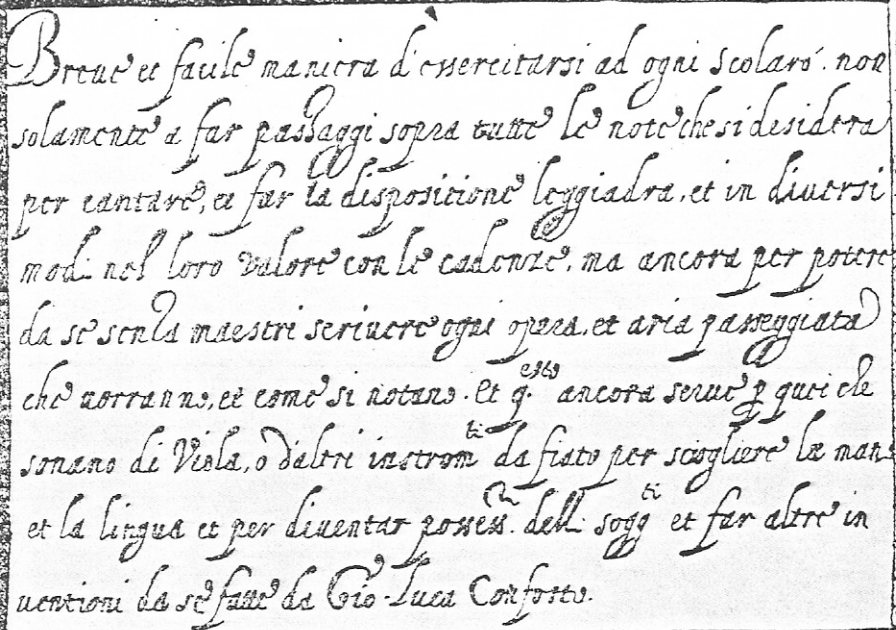 Breue et facile maniera d'essercitarsi ad ogni scolaro. non
solamente a far passaggi sopra tutte le note che si desidera
per cantare, et far la dispositione leggiadra, et in diuersi
modi nel loro valore con le cadenze, ma ancora per potere
da se senza maestri scriuere ogni opera, et aria passeggiata
che uorranno, et come si notano. Et q.esto ancora serue p quei che
sonano di Viola, o d'altri instromti da fiato per sciogliere la mano
et la lingua et per diuentar possess. delli soggti et far altre in
uentioni da se fatte da Gio. Luca Conforto.